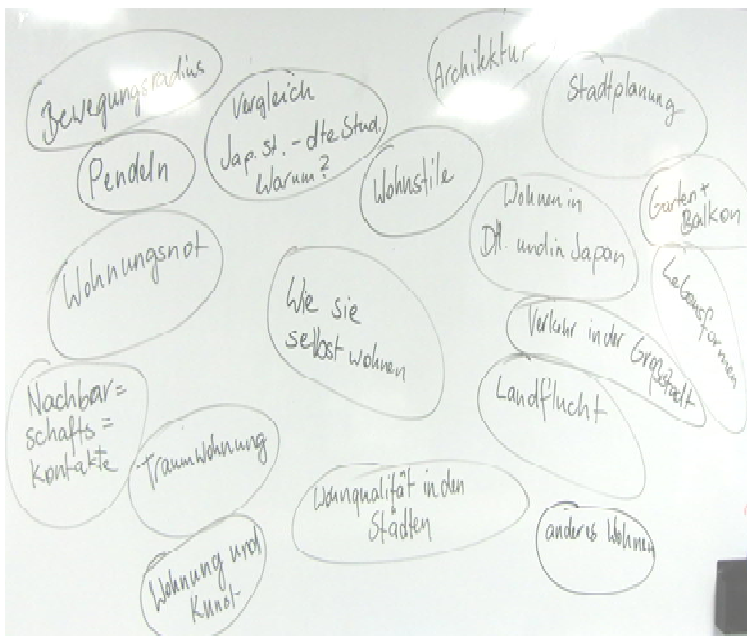 Bewegungsradius
Pendeln
Vergleich
Jap. St. - dte Stud.
Warum?
Architektur
Stadtplanung
Wohnstile
Wohnen in
Dtl. und in Japan
Garten +
Balkon
Lebensformen
Wohnungsnot
Wie sie
selbst wohnen
Verkehr in der Großstadt
Landflucht
Nachbar=
schafts=
kontakte
Traumwohnung
Wohnqualität in den
Städten
anderes Wohnen
Wohnung und
Kunst